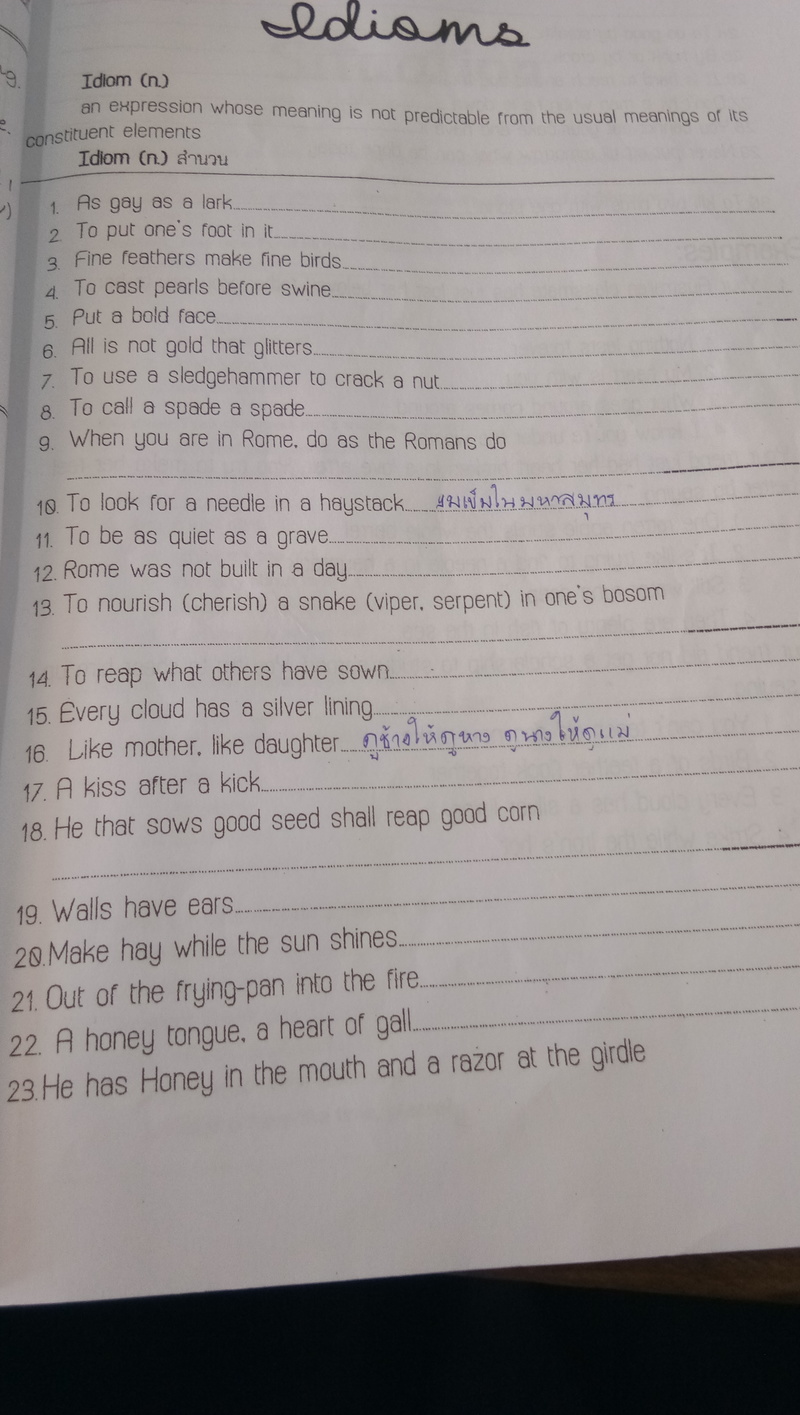 Idioms
9.
Idiom (n.)
an expression whose meaning is not predictable from the usual meanings of its
constituent elements
Idiom (n.) สำนวน
1. As gay as a lark
2. To put one's foot in it
3. Fine feathers make fine birds
4. To cast pearls before swine
5. Put a bold face
6. All is not gold that glitters
7. To use a sledgehammer to crack a nut
8. To call a spade a spade
9. When you are in Rome, do as the Romans do
10. To look for a needle in a haystack งมเข็มในมหาสมุทร
11. To be as quiet as a grave
12. Rome was not built in a day
13. To nourish (cherish) a snake (viper, serpent) in one's bosom
14. To reap what others have sown
15. Every cloud has a silver lining
16. Like mother, like daughter ดูช้างให้ดูหาง ดูนางให้ดูแม่
17. A kiss after a kick
18. He that sows good seed shall reap good corn
19. Walls have ears
20. Make hay while the sun shines
21. Out of the frying-pan into the fire
22. A honey tongue, a heart of gall
23. He has Honey in the mouth and a razor at the girdle